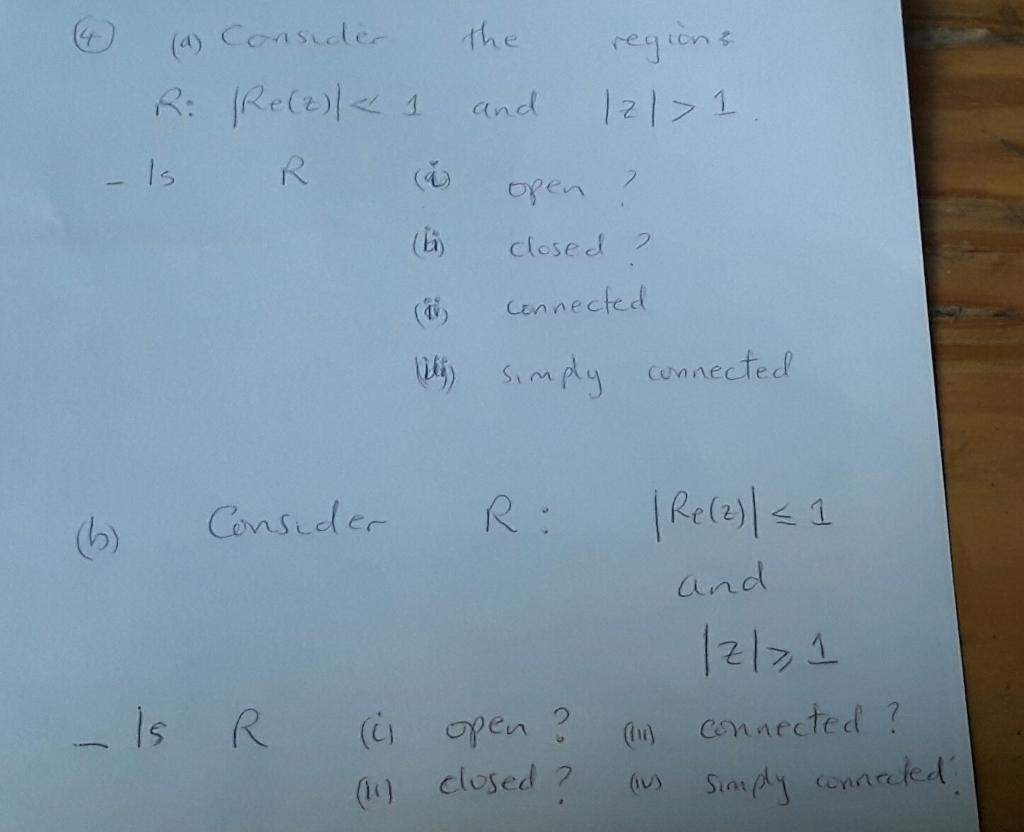 ④ (a) Consider the regions
R: |Re(z)| < 1 and |z| > 1.
– Is R (i) open ?
(ii) closed ?
connected
simply connected
(b) Consider R: |Re(z)| ≤ 1
and
|z| ≥ 1
– Is R (i) open ? (iii) connected ?
(ii) closed ? (iv) simply connected?